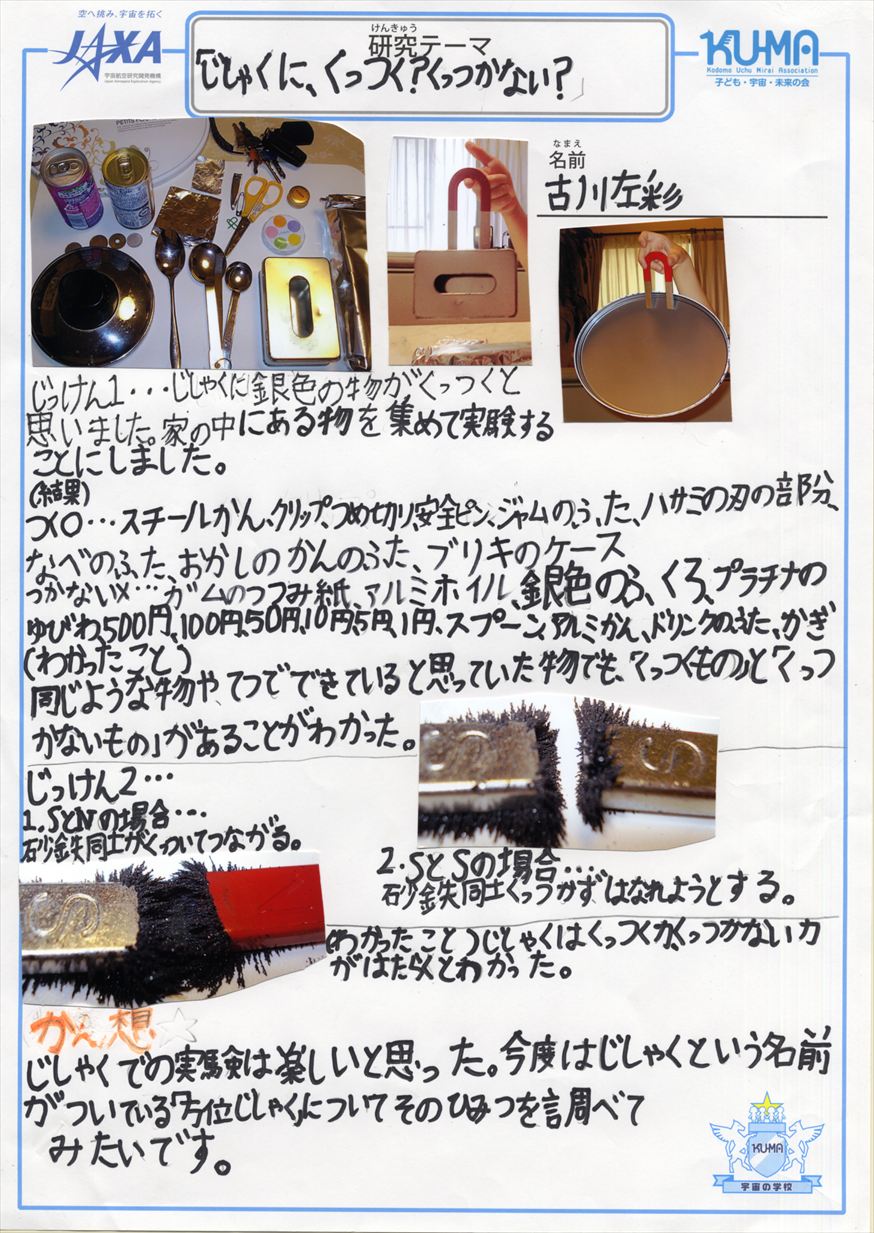 空へ挑み、宇宙を拓く
JAXA
宇宙航空研究開発機構
Japan Aerospace Exploration Agency
けんきゅう
研究テーマ
「じしゃくに、くっつく?くっつかない?」
KU-MA
Kodomo Uchu Mirai Association
子ども・宇宙・未来の会
なまえ
名前
古川左彩
じっけん1・・・じしゃくに銀色の物がくっつくと
思いました。家の中にある物を集めて実験する
ことにしました。
(結果)
つく○・・・スチールかん、クリップ、つめ切り、安全ピン、ジャムのふた、ハサミの刃の部分、
なべのふた、おかしのかんのふた、ブリキのケース
つかない×・・・ガムのつつみ紙、アルミホイル、銀色のふくろ、プラチナの
ゆびわ、500円、100円、50円、10円、5円、1円、スプーン、アルミかん、ドリンクのふた、かぎ
(わかったこと)
同じような物や、てつでできていると思っていた物でも、「くっつくもの」と「くっつ
かないもの」があることがわかった。
じっけん2・・・
1.SとNの場合・・・
砂鉄同士がくっついてつながる。
S
S
2.SとSの場合・・・
砂鉄同士くっつかずはなれようとする。
S
(わかったこと)じしゃくはくっつく力、くっつかない力
がはたらくとわかった。
かん想
じしゃくでの実験は楽しいと思った。今度はじしゃくという名前
がついている「方位じしゃく」についてそのひみつを調べて
みたいです。
KU-MA
宇宙の学校